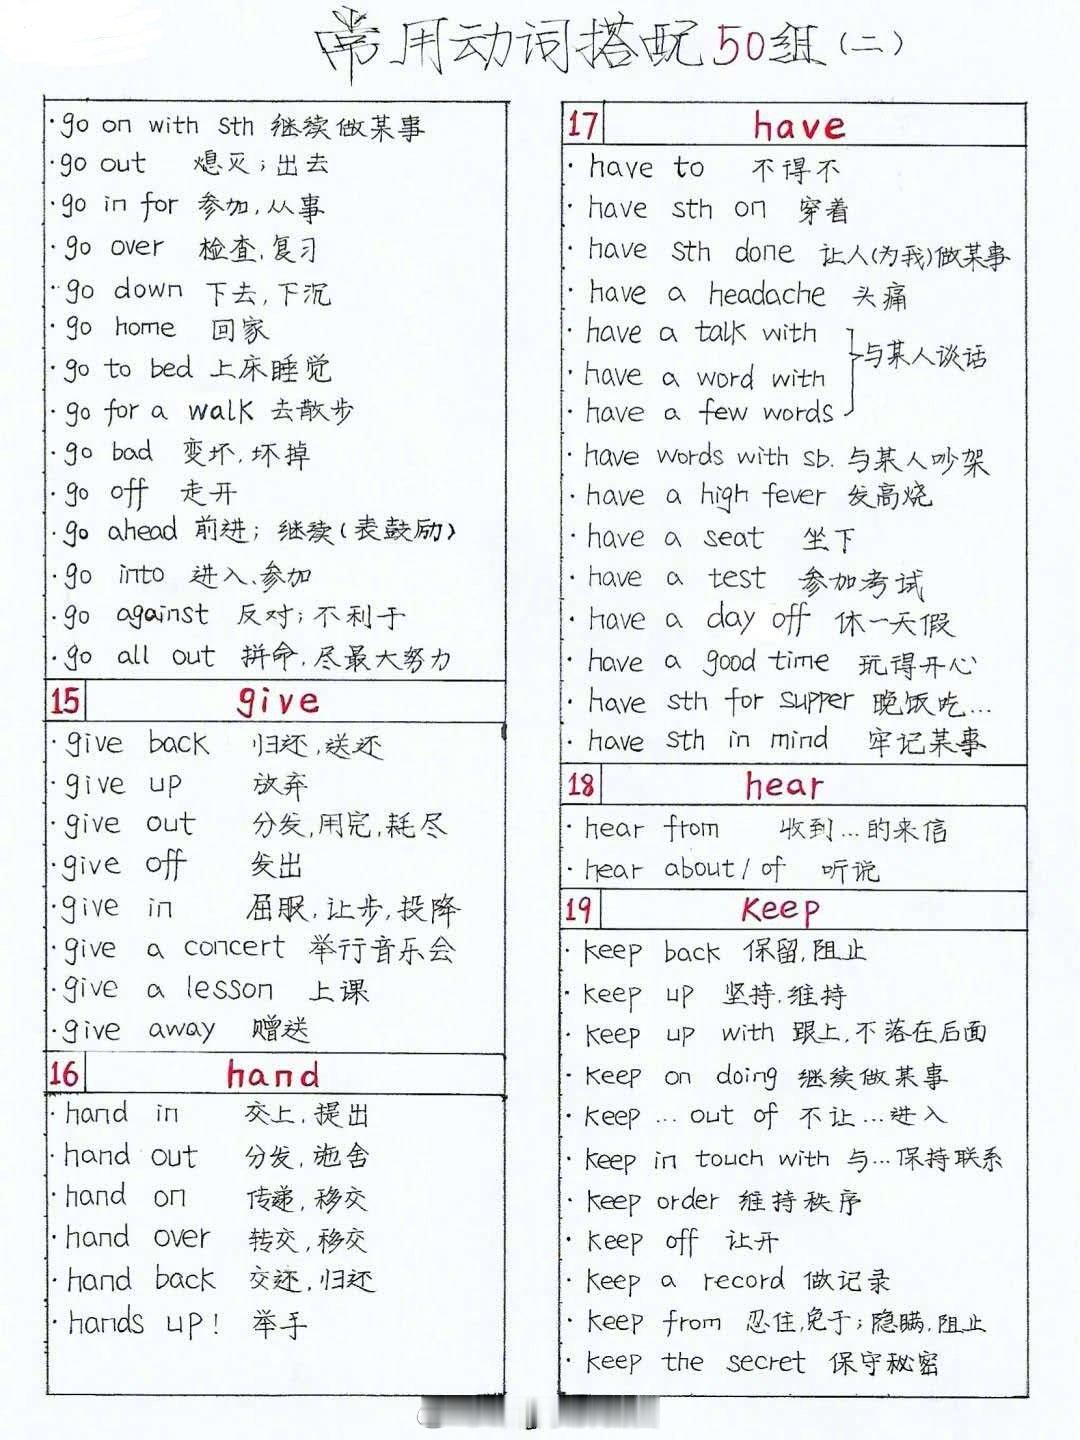 常用动词搭配50组(二)
·go on with sth 继续做某事
·go out 熄灭;出去
·go in for 参加,从事
·go over 检查,复习
·go down 下去,下沉
·go home 回家
·go to bed 上床睡觉
·go for a walk 去散步
·go bad 变坏,坏掉
·go off 走开
·go ahead 前进;继续(表鼓励)
·go into 进入、参加
·go against 反对;不利于
·go all out 拼命,尽最大努力
15 give
·give back 归还,送还
·give up 放弃
·give out 分发,用完,耗尽
·give off 发出
·give in 屈服,让步,投降
·give a concert 举行音乐会
·give a lesson 上课
·give away 赠送
16 hand
·hand in 交上,提出
·hand out 分发,施舍
·hand on 传递,移交
·hand over 转交,移交
·hand back 交还,归还
·hands up! 举手
17 have
·have to 不得不
·have sth on 穿着
·have sth done 让人(为我)做某事
·have a headache 头痛
·have a talk with
·have a word with 与某人谈话
·have a few words
·have words with sb. 与某人吵架
·have a high fever 发高烧
·have a seat 坐下
·have a test 参加考试
·have a day off 休一天假
·have a good time 玩得开心
·have sth for supper 晚饭吃...
·have sth in mind 牢记某事
18 hear
·hear from 收到...的来信
·hear about/of 听说
19 Keep
·keep back 保留,阻止
·keep up 坚持,维持
·keep up with 跟上,不落在后面
·keep on doing 继续做某事
·keep ... out of 不让...进入
·keep in touch with 与...保持联系
·keep order 维持秩序
·keep off 让开
·keep a record 做记录
·keep from 忍住,免于;隐瞒,阻止
·keep the secret 保守秘密